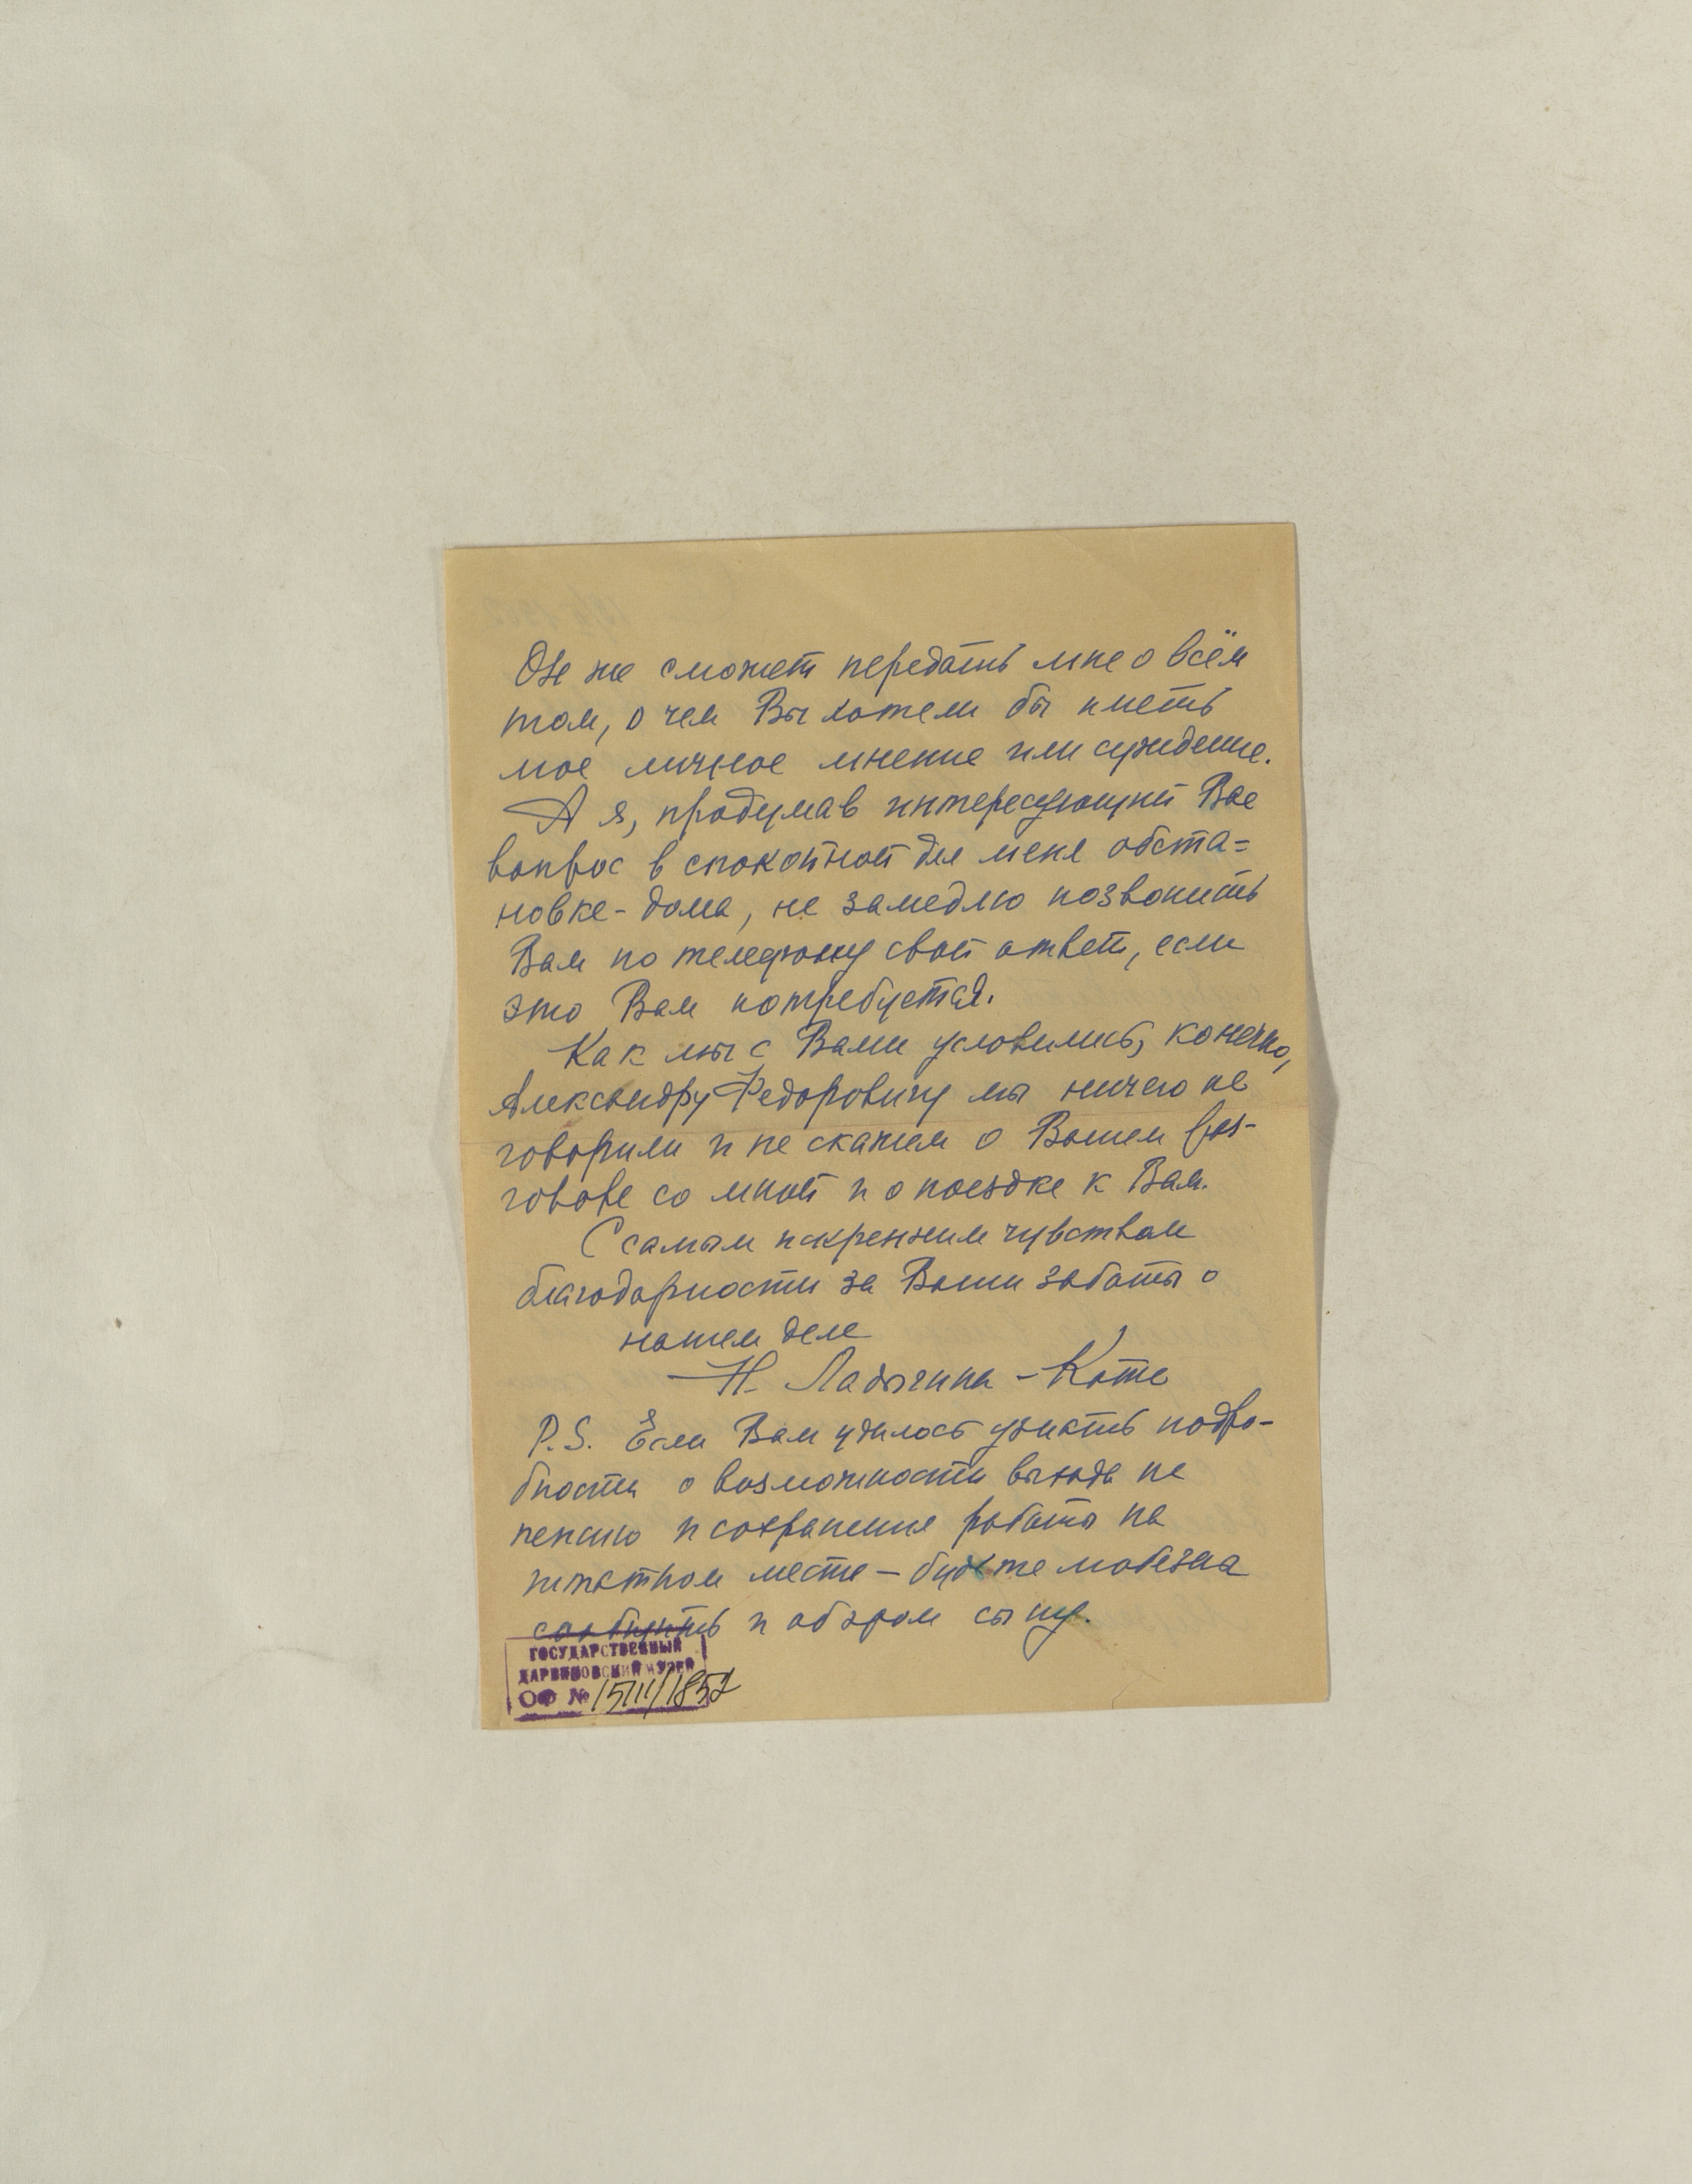 Он же сможет передать мне о всём
том, о чем Вы хотели бы иметь
мое личное мнение или суждение.
А я, продумав интересующий Вас
вопрос в спокойной для меня обста=
новке - дома, не замедлю позвонить
Вам по телефону свой ответ, если
это Вам потребуется.
Как мы с Вами условились, конечно,
Александру Федоровичу мы ничего не
говорили и не скажем о Вашем раз-
говоре со мной и о поездке к Вам.
С самым искренним чувством
благодарности за Ваши заботы о
нашем деле
Н. Ладыгина-Котс
P.S. Если Вам удалось узнать подро-
бности о возможности выхода на
пенсию и сохранения работы на
штатном месте – будьте любезна
сообщить и об этом сыну.
ГОСУДАРСТВЕННЫЙ
ДАРВИНОВСКИЙ МУЗЕЙ
ОФ №